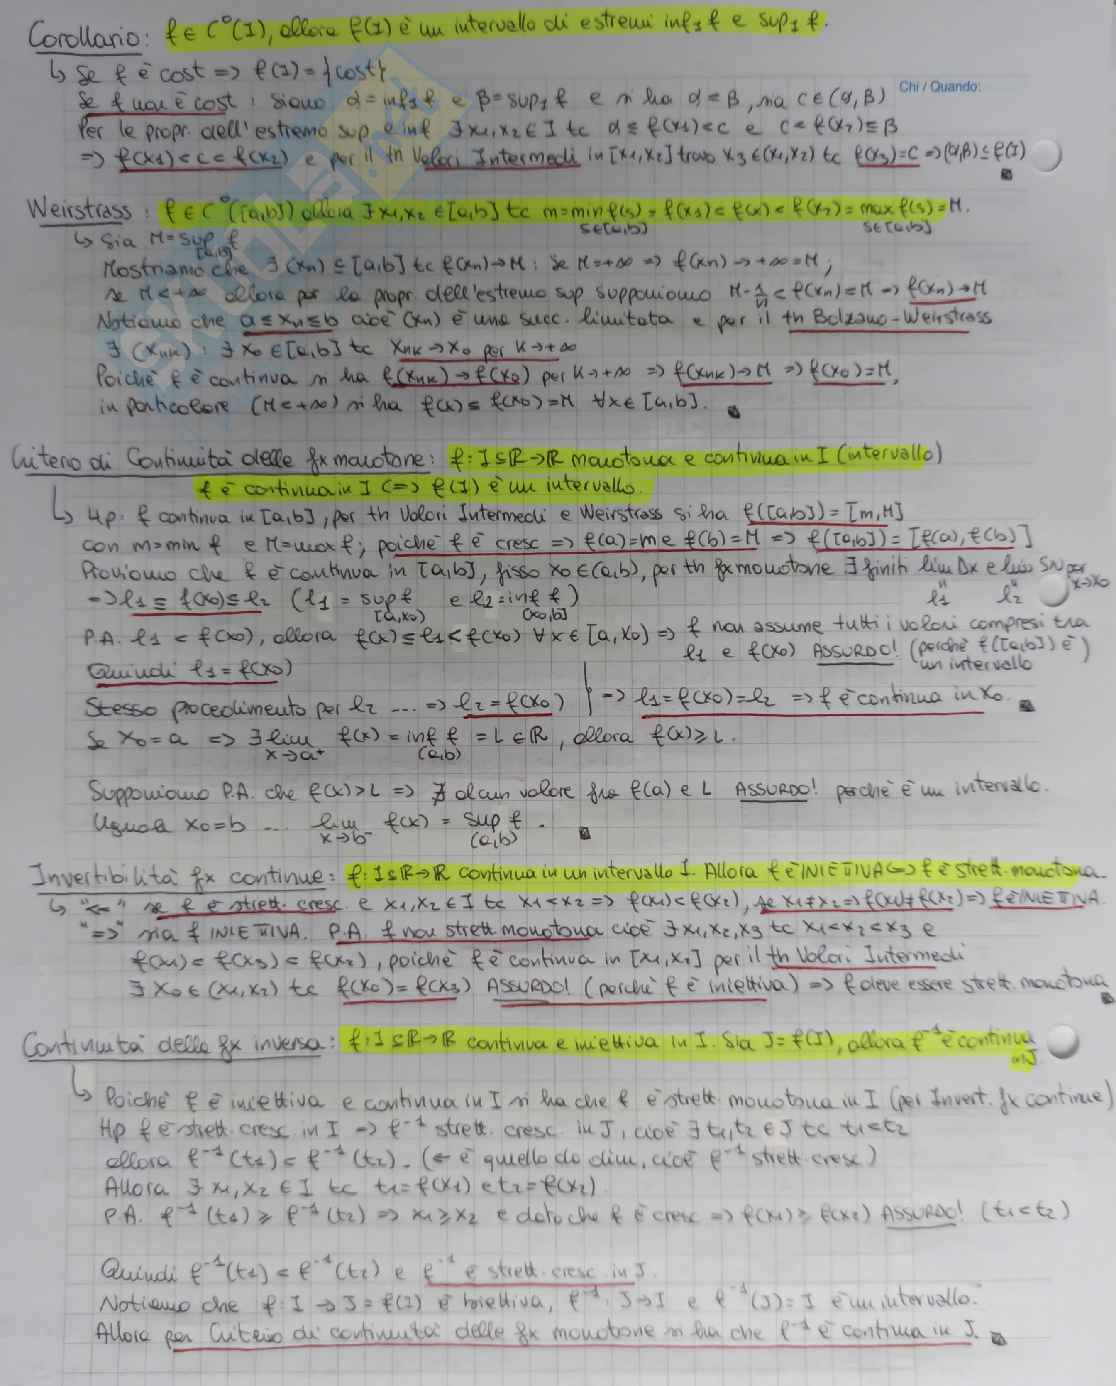 Corollario: f ∈ C⁰(I), allora f(I) è un intervallo di estremi inf_I f e sup_I f.
↳ Se f è cost => f(I) = {cost}
Chi / Quando:
Se f non è cost: siano α = inf_I f e β = sup_I f e si ha α < β, sia c ∈ (α, β)
Per le propr. dell'estremo sup e inf ∃ x1, x2 ∈ I tc α ≤ f(x1) < c e c < f(x2) ≤ β
=> f(x1) < c < f(x2) e per il th Valori Intermedi in [x1, x2] trovo x3 ∈ (x1, x2) tc f(x3) = c => (α, β) ⊆ f(I)
Weirstrass: f ∈ C⁰([a,b]) allora ∃ x1, x2 ∈ [a,b] tc m = min f(s) = f(x1) ≤ f(x) ≤ f(x2) = max f(s) = M.
s∈[a,b] s∈[a,b]
↳ Sia M = sup f
[a,b]
Mostriamo che ∃ (xn) ⊆ [a,b] tc f(xn) → M: Se M = +∞ => f(xn) → +∞ = M;
se M < +∞ allora per la propr. dell'estremo sup supponiamo M - 1/n < f(xn) ≤ M => f(xn) → M
Notiamo che a ≤ xn ≤ b cioè (xn) è una succ. limitata e per il th Bolzano-Weirstrass
∃ (xnk): ∃ x0 ∈ [a,b] tc xnk → x0 per k → +∞
Poichè f è continua si ha f(xnk) → f(x0) per k → +∞ => f(xnk) → M => f(x0) = M,
in particolare (M < +∞) si ha f(x) ≤ f(x0) = M ∀x ∈ [a,b].
Criterio di Continuità delle fx monotone: f: I ⊆ ℝ → ℝ monotona e continua in I (intervallo)
f è continua in I <=> f(I) è un intervallo.
↳ Hp. f continua in [a,b], per th Valori Intermedi e Weirstrass si ha f([a,b]) = [m,M]
con m = min f e M = max f; poichè f è cresc => f(a) = m e f(b) = M => f([a,b]) = [f(a), f(b)]
Proviamo che f è continua in [a,b], fisso x0 ∈ (a,b), per th fx monotone ∃ finiti lim Dx e lim Sx per x→x0
=> l1 ≤ f(x0) ≤ l2 (l1 = sup f e l2 = inf f) l1 l2
[a,x0) (x0,b]
P.A. l1 < f(x0), allora f(x) ≤ l1 < f(x0) ∀x ∈ [a,x0] => f non assume tutti i valori compresi tra
l1 e f(x0) ASSURDO! (perchè f([a,b]) è un intervallo)
Quindi l1 = f(x0)
Stesso procedimento per l2 ... => l2 = f(x0) => l1 = f(x0) = l2 => f è continua in x0.
Se x0 = a => ∃ lim f(x) = inf f = L ∈ ℝ, allora f(x) ≥ L.
x→a⁺ (a,b)
Supponiamo P.A. che f(x) > L => ∄ alcun valore fra f(a) e L ASSURDO! perchè è un intervallo.
Uguale x0 = b ... lim f(x) = sup f.
x→b⁻ (a,b)
Invertibilità fx continue: f: I ⊆ ℝ → ℝ continua in un intervallo I. Allora f è INIETTIVA <=> f è strett. monotona.
↳ "<=" se f è strett. cresc. e x1, x2 ∈ I tc x1 < x2 => f(x1) < f(x2), se x1 ≠ x2 => f(x1) ≠ f(x2) => f è INIETTIVA.
"=>" sia f INIETTIVA. P.A. f non strett. monotona cioè ∃ x1, x2, x3 tc x1 < x2 < x3 e
f(x1) < f(x3) < f(x2), poichè f è continua in [x1, x2] per il th Valori Intermedi
∃ x0 ∈ (x1, x2) tc f(x0) = f(x3) ASSURDO! (perchè f è iniettiva) => f deve essere strett. monotona
Continuità delle fx inversa: f: I ⊆ ℝ → ℝ continua e iniettiva in I. Sia J = f(I), allora f⁻¹ è continua
in J.
↳ Poichè f è iniettiva e continua in I si ha che f è strett. monotona in I (per Invert. fx continue)
Hp f è strett. cresc. in I => f⁻¹ strett. cresc. in J, cioè ∃ t1, t2 ∈ J tc t1 < t2
allora f⁻¹(t1) < f⁻¹(t2). (← è quello da dim, cioè f⁻¹ strett. cresc)
Allora ∃ x1, x2 ∈ I tc t1 = f(x1) e t2 = f(x2).
P.A. f⁻¹(t1) ≥ f⁻¹(t2) => x1 ≥ x2 e dato che f è cresc => f(x1) ≥ f(x2) ASSURDO! (t1 < t2)
Quindi f⁻¹(t1) < f⁻¹(t2) e f⁻¹ è strett. cresc. in J.
Notiamo che f: I → J = f(I) è biettiva, f⁻¹: J → I e f⁻¹(J) = I è un intervallo.
Allora per Criterio di continuità delle fx monotone si ha che f⁻¹ è continua in J.